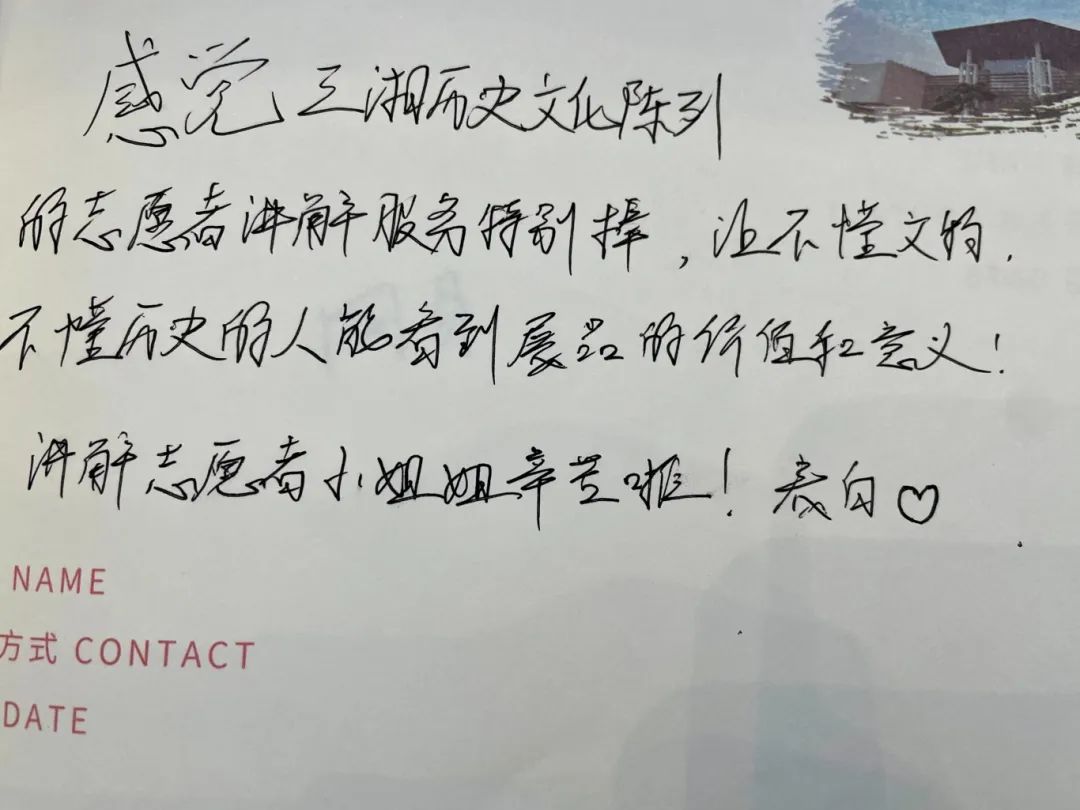 感觉三湘历史文化陈列
的志愿者讲解服务特别棒，让不懂文物.
不懂历史的人能看到展品的价值和意义！
讲解志愿者小姐姐辛苦啦！表白♡
NAME
方式 CONTACT
DATE